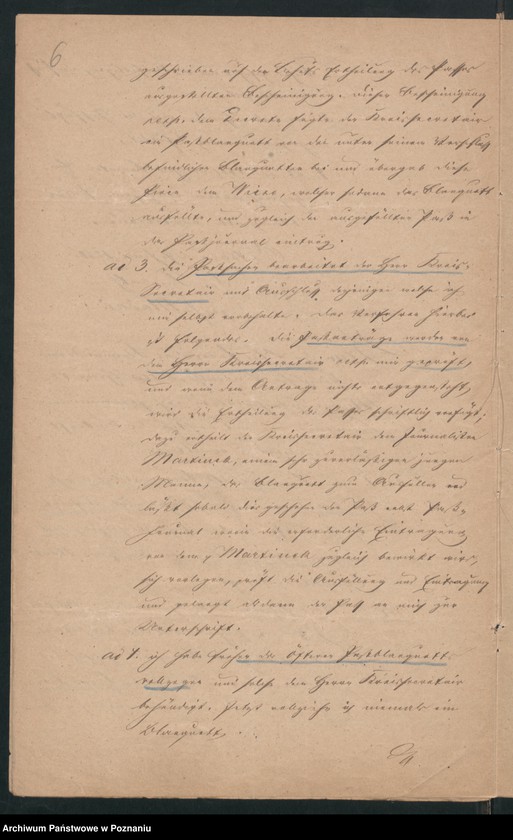 6
geschrieben und die behufs Ertheilung des Passes
ausgestellten Bescheinigung. Dieser Bescheinigung
resp. dem Decrete fügte der Kreissecretair
ein Passblanquett von den unter seinem Verschluß
befindlichen Blanquetten bei und übergab diese
Piecen dem Wizeo, welcher sodann das Blanquett
ausfüllte, und zugleich den ausgefüllten Paß in
das Paßjournal eintrug.
ad 3. die Paßsachen bearbeitet der Herr Kreis-
Secretair mit Ausschluß derjenigen welche ich
mir selbst vorbehalte. Das Verfahren hierbei
ist folgendes. Die Paßanträge werden von
dem Herrn Kreissecretair oder mir geprüft,
und wenn dem Antrage nichts entgegensteht,
wird die Ertheilung des Passes schriftlich verfügt;
dazu ertheilt der Kreissecretair dem Journalisten
Martinek, einem sehr zuverlässigen jungen
Manne, das Blanquett zum Ausfüllen und
läßt sobald dies geschehen der Paß nebst Paß-
Journal worin die erforderliche Eintragung
von dem p Martinek zugleich bewirkt wird,
sich vorlegen, prüft die Ausfüllung und Eintragung
und gelangt alsdann der Paß an mich zur
Unterschrift.
ad 4. ich habe früher des Öfteren Paßblanquetts
vollzogen und solche dem Herrn Kreissecretair
behändigt. Jetzt vollziehe ich niemals ein
Blanquett.
Archiwum Państwowe w Poznaniu